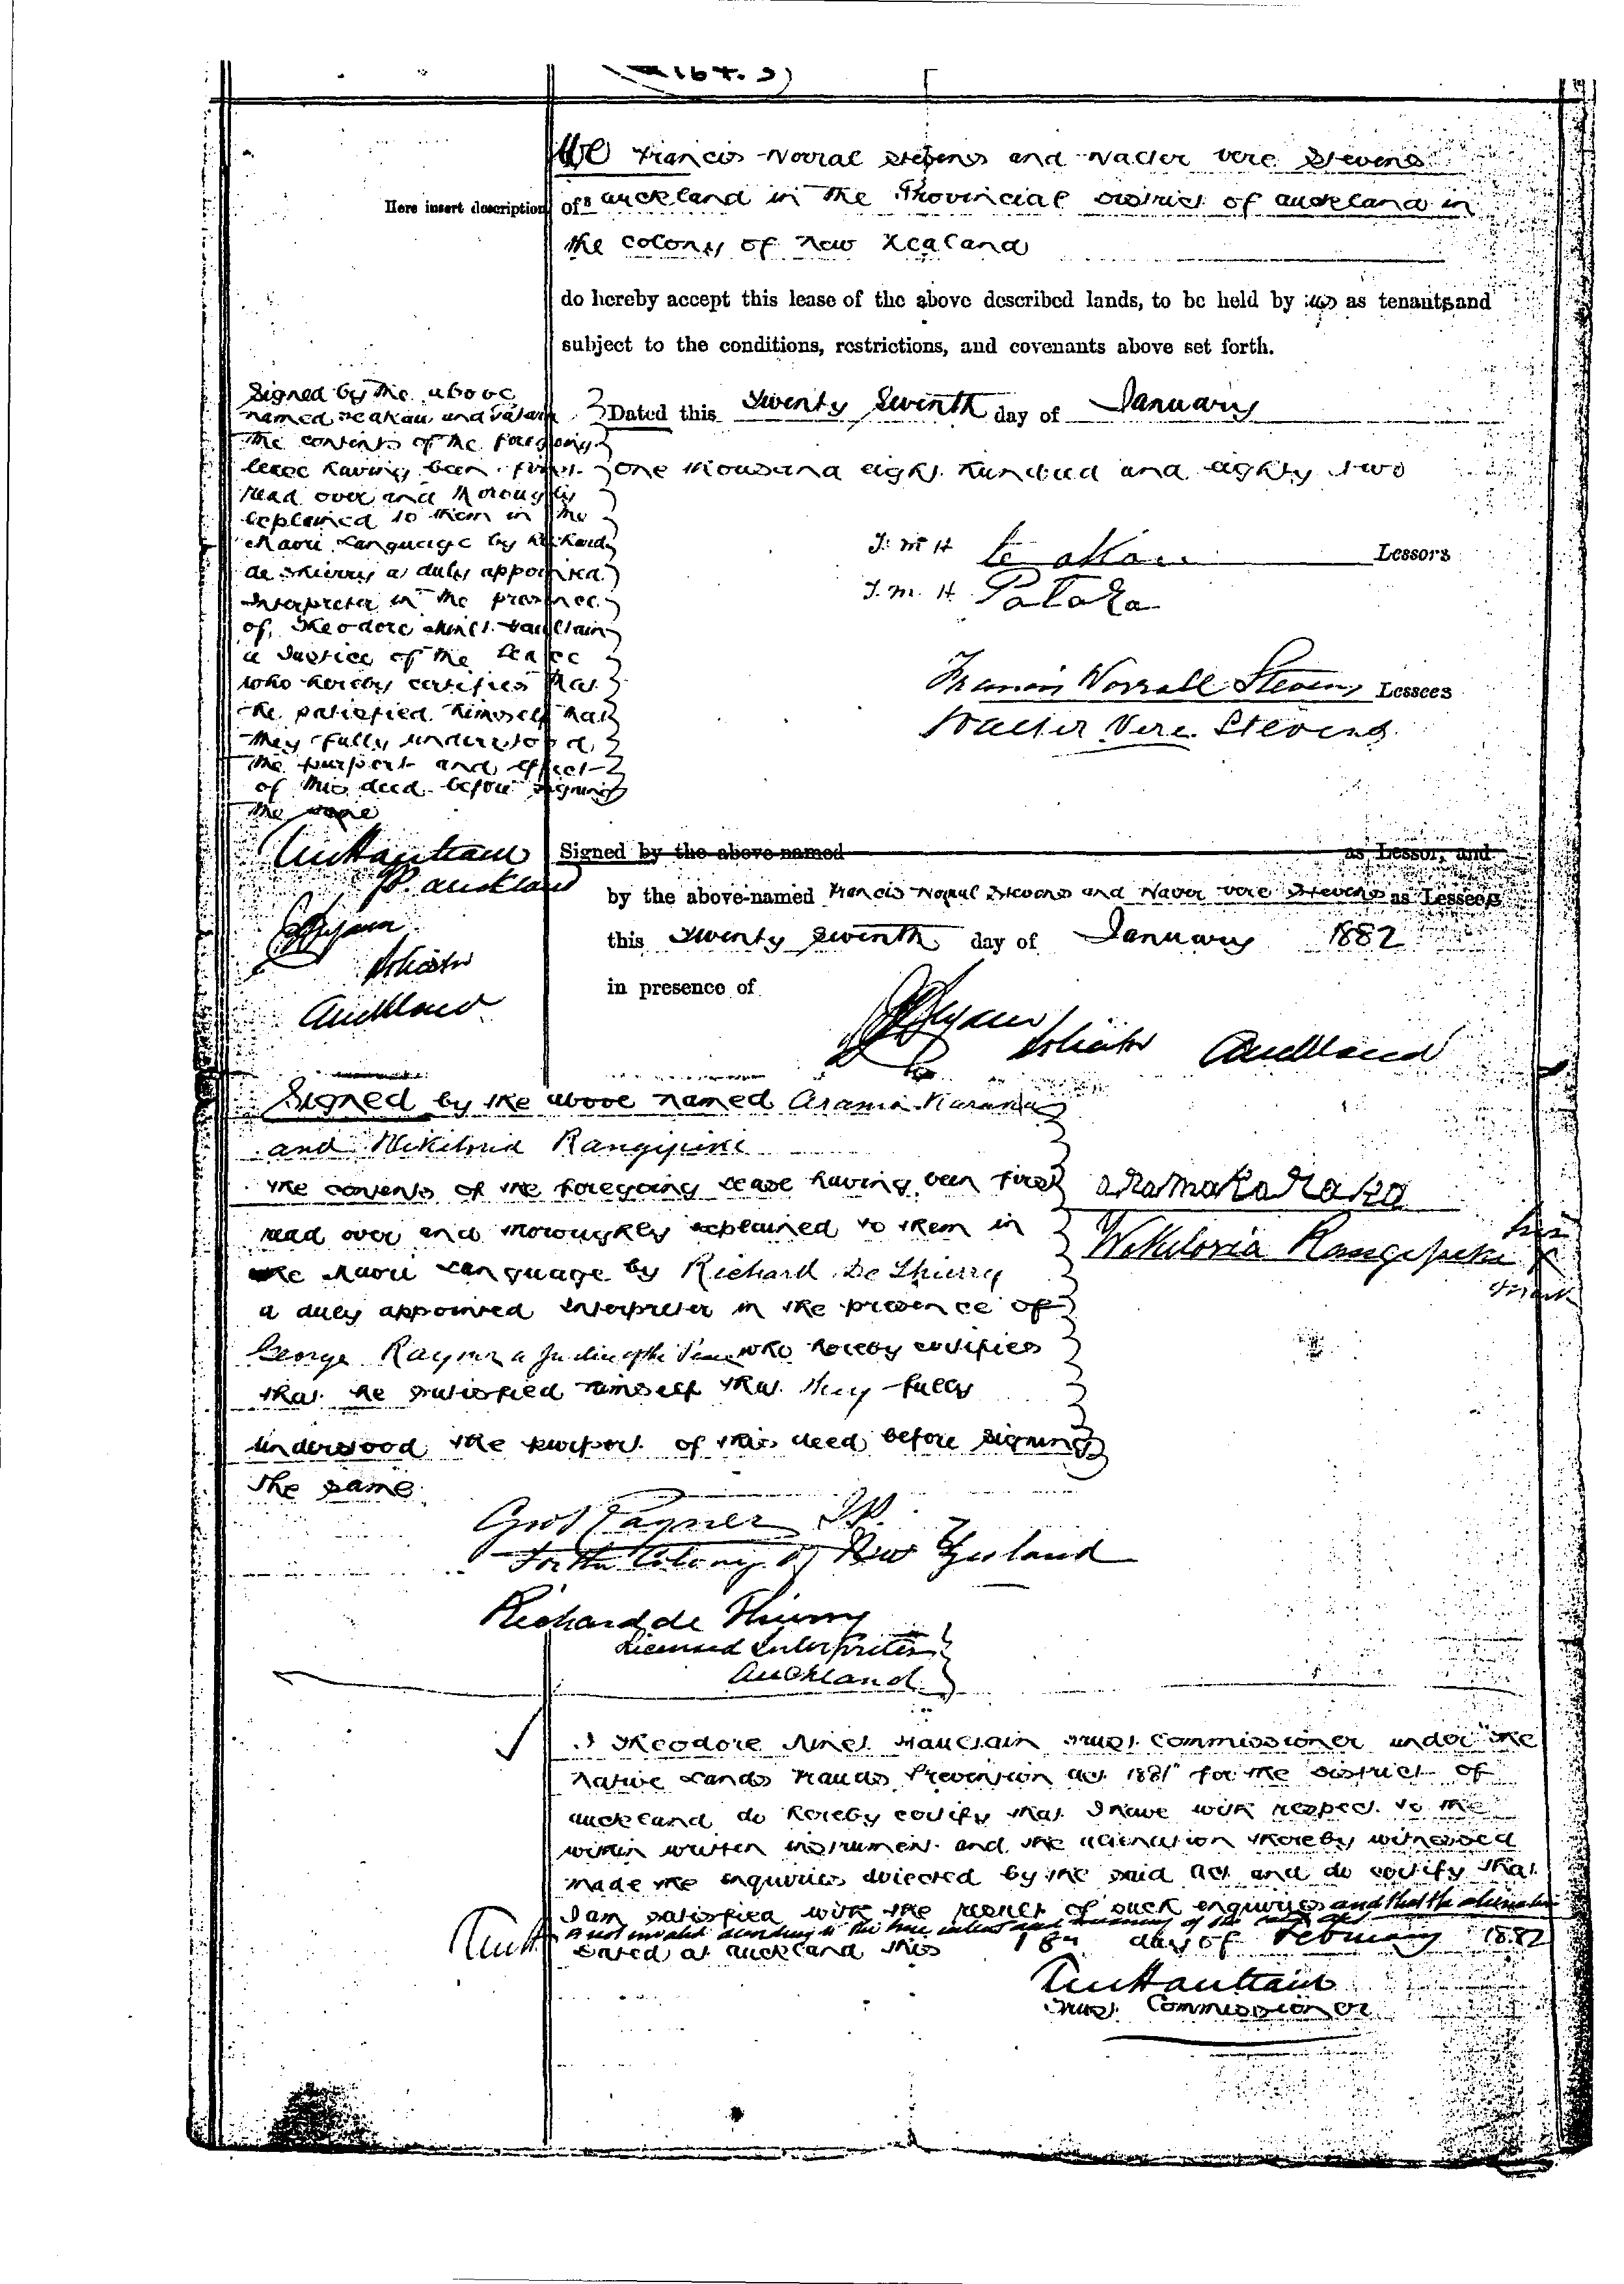 We Francis Worral Stevens and Walter Vere Stevens
Here insert description of auckland in the Provincial District of auckland in
the colony of New Zealand
do hereby accept this lease of the above described lands, to be held by us as tenants and
subject to the conditions, restrictions, and covenants above set forth.
Dated this Twenty Seventh day of January
one thousand eight hundred and eighty two
Signed by the above
named Te akau and Patara
the contents of the foregoing
lease having been first
read over and thoroughly
explained to them in the
Maori Language by Richard
de Thierry a duly appointed
Interpreter in the presence
of Theodore Minet Haultain
a Justice of the Peace
who hereby certifies that
he satisfied himself that
they fully understood
the purport and effect
of this deed before signing
the same
T. M. H. Te akau Lessors
T. M. H. Patara
Francis Worrall Stevens Lessees
Walter Vere Stevens
TMHaultain
JP. auckland
Solicitor
Auckland
Signed by the above-named as Lessor, and
by the above-named Francis Worral Stevens and Walter Vere Stevens as Lessees
this Twenty Seventh day of January 1882
in presence of
Solicitor Auckland
Signed by the above named Arama Karaka
and Wikitoria Rangipiki
the contents of the foregoing lease having been first
read over and thoroughly explained to them in
the Maori Language by Richard De Thierry
a duly appointed Interpreter in the presence of
George Rayner a Justice of the Peace who hereby certifies
that he satisfied himself that they fully
understood the purport of this deed before signing
the same
arama Karaka
Wikitoria Rangipiki X
her
mark
Geo Rayner J.P.
for the Colony of New Zealand
Richard de Thierry
Licensed Interpreter
Auckland
I Theodore Minet Haultain Trust Commissioner under "the
Native Lands Frauds Prevention act 1881" for the District of
auckland do hereby certify that I have with respect to the
within written instrument and the alienation thereby witnessed
made the enquiries directed by the said Act and do certify that
I am satisfied with the result of such enquiries and that the alienation
is not invalid according to the true intent and meaning of the said Act
Dated at auckland this 18th day of February 1882
TMHaultain
Trust Commissioner